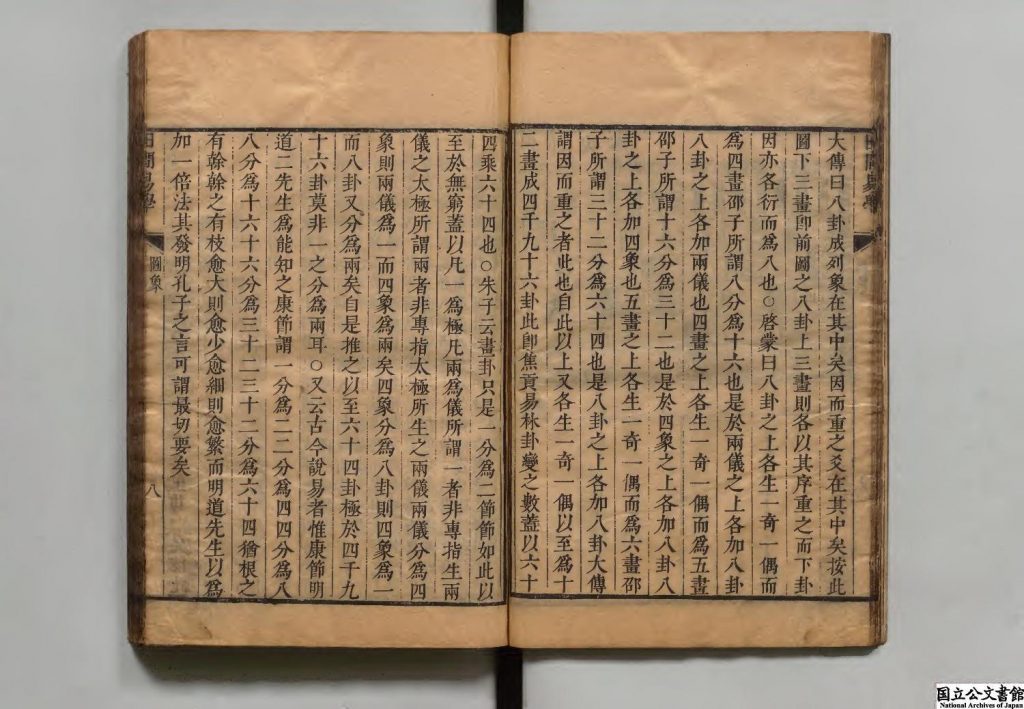 大傳曰八卦成列象在其中矣因而重之爻在其中矣按此
圖下三畫卽前圖之八卦上三畫則各以其序重之而下卦
因亦各衍而爲八也○啓蒙曰八卦之上各生一奇一偶而
爲四畫邵子所謂八分爲十六也是於兩儀之上各加八卦
八卦之上各加兩儀也四畫之上各生一奇一偶而爲五畫
邵子所謂十六分爲三十二也是於四象之上各加八卦八
卦之上各加四象也五畫之上各生一奇一偶而爲六畫邵
子所謂三十二分爲六十四也是八卦之上各加八卦大傳
謂因而重之者此也自此以上又各生一奇一偶以至爲十
二畫成四千九十六卦此卽焦貢易林卦變之數蓋以六十
四乘六十四也○朱子云畫卦只是一分爲二節節如此以
至於無窮蓋以凡一爲極凡兩爲儀所謂一者非專指生兩
儀之太極所謂兩者非專指太極所生之兩儀兩儀分爲四
象則兩儀爲一而四象爲兩矣四象分爲八卦則四象爲一
而八卦又分爲兩矣自是推之以至六十四卦極於四千九
十六卦莫非一之分爲兩耳○又云古今說易者惟康節明
道二先生爲能知之康節謂一分爲二二分爲四四分爲八
八分爲十六十六分爲三十二三十二分爲六十四猶根之
有幹幹之有枝愈大則愈少愈細則愈繁而明道先生以爲
加一倍法其發明孔子之言可謂最切要矣
田間易學
圖象
八
国立公文書館
National Archives of Japan